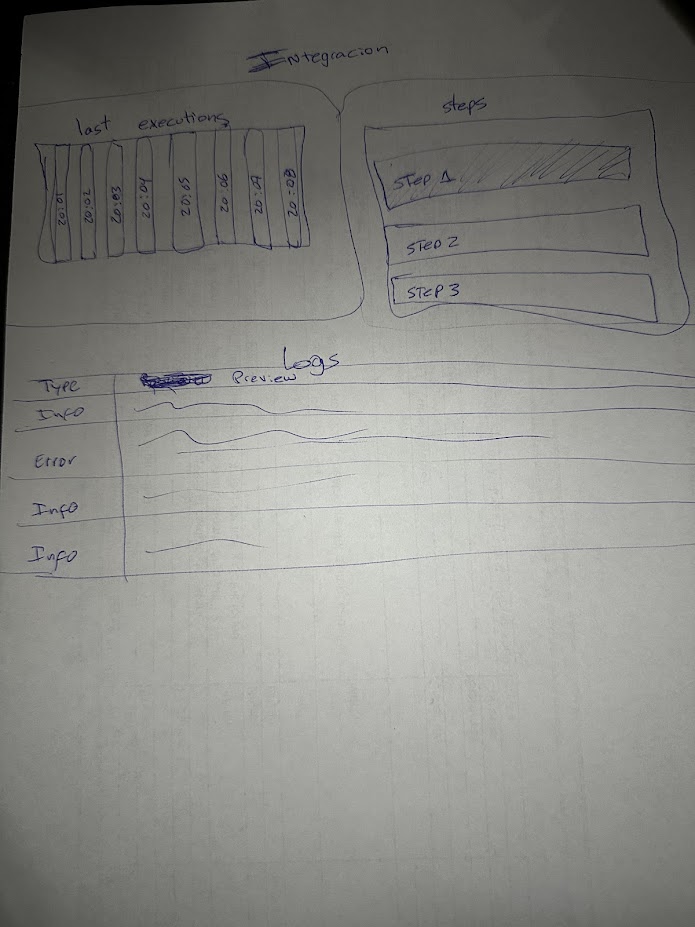 Integracion
last executions
20:01
20:02
20:03
20:04
20:05
20:06
20:07
20:08
steps
Step 1
Step 2
Step 3
Logs
Type Preview
Info
Error
Info
Info